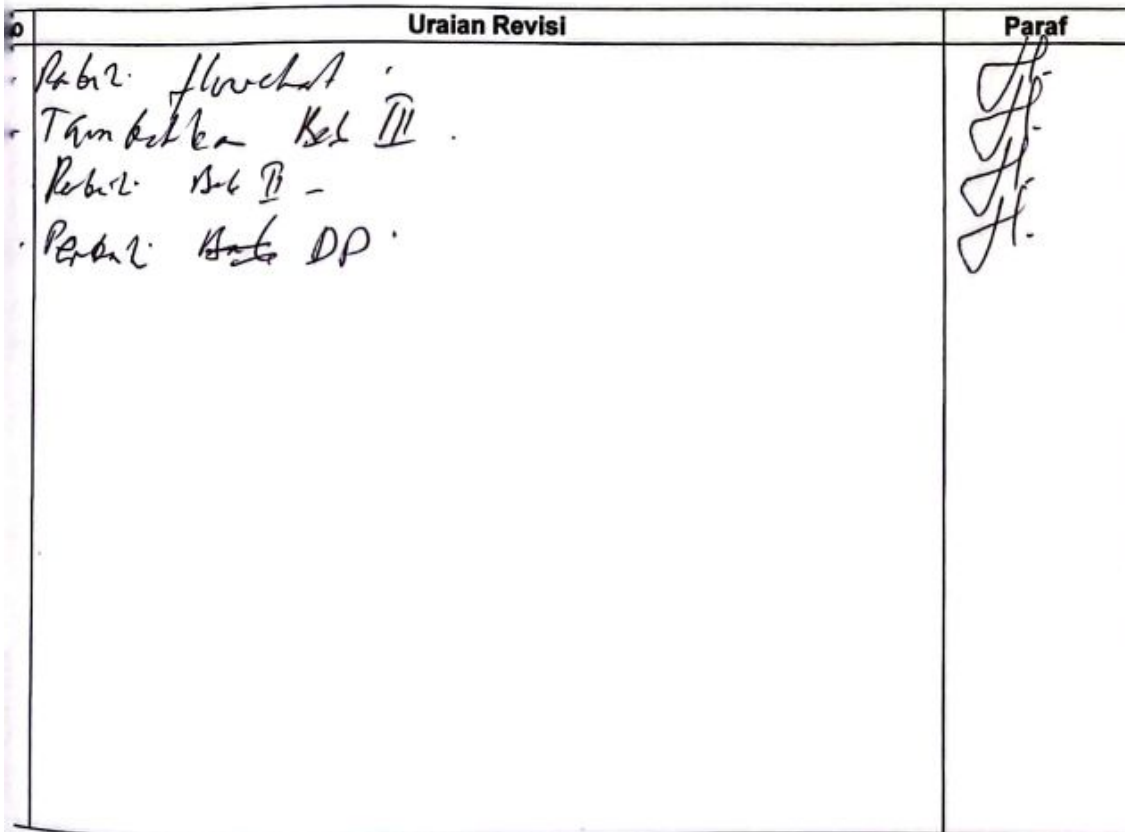 Uraian Revisi Paraf
Perbaiki flowchart
Tambahkan Bab III.
Perbaiki Bab II -
Perbaiki Bab DP.